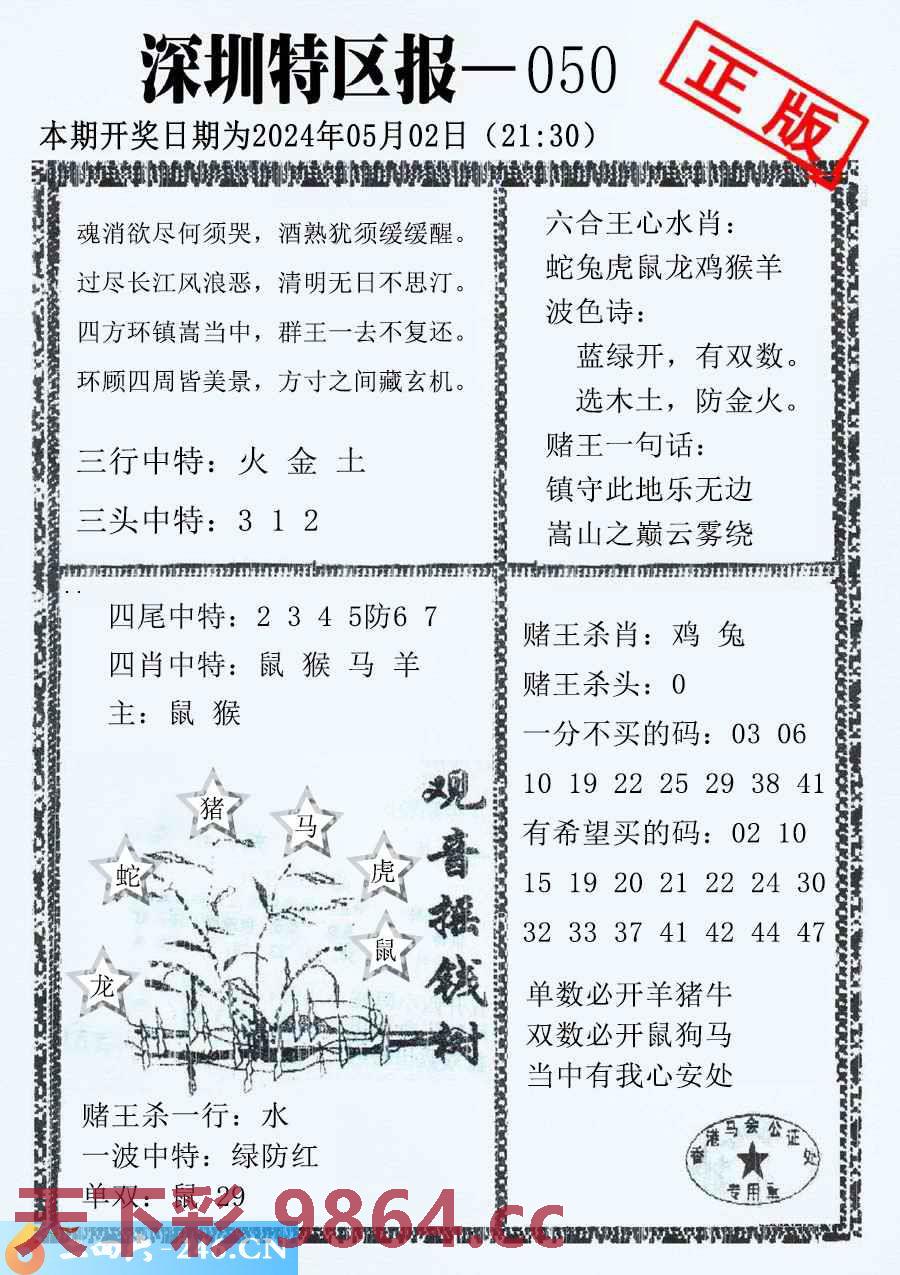 深圳特区报—050
正版
本期开奖日期为2024年05月02日（21:30）
魂消欲尽何须哭，酒熟犹须缓缓醒。
过尽长江风浪恶，清明无日不思汀。
四方环镇嵩当中，群王一去不复还。
环顾四周皆美景，方寸之间藏玄机。
三行中特：火 金 土
三头中特：3 1 2
六合王心水肖：
蛇兔虎鼠龙鸡猴羊
波色诗：
蓝绿开，有双数。
选木土，防金火。
赌王一句话：
镇守此地乐无边
嵩山之巅云雾绕
四尾中特：2 3 4 5防6 7
四肖中特：鼠 猴 马 羊
主：鼠 猴
观音摇钱树
猪
马
蛇
虎
鼠
龙
赌王杀一行：水
一波中特：绿防红
单双：鼠 29
赌王杀肖：鸡 兔
赌王杀头：0
一分不买的码：03 06
10 19 22 25 29 38 41
有希望买的码：02 10
15 19 20 21 22 24 30
32 33 37 41 42 44 47
单数必开羊猪牛
双数必开鼠狗马
当中有我心安处
香港马会公证处
专用章
天下彩 9864.cc
-246.CN